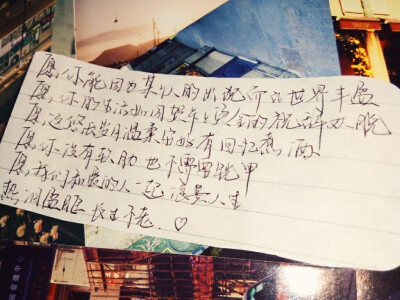 愿,你能因为某个人的出现而让世界丰盈
愿,你的生活如同贺年卡上烫金的祝辞欢脱
愿,这悠长岁月温柔安好有回忆煮酒
愿,你没有软肋也不需要铠甲
愿,我们和爱的人一起 浪费人生
热泪盈眶 长生不老.♡